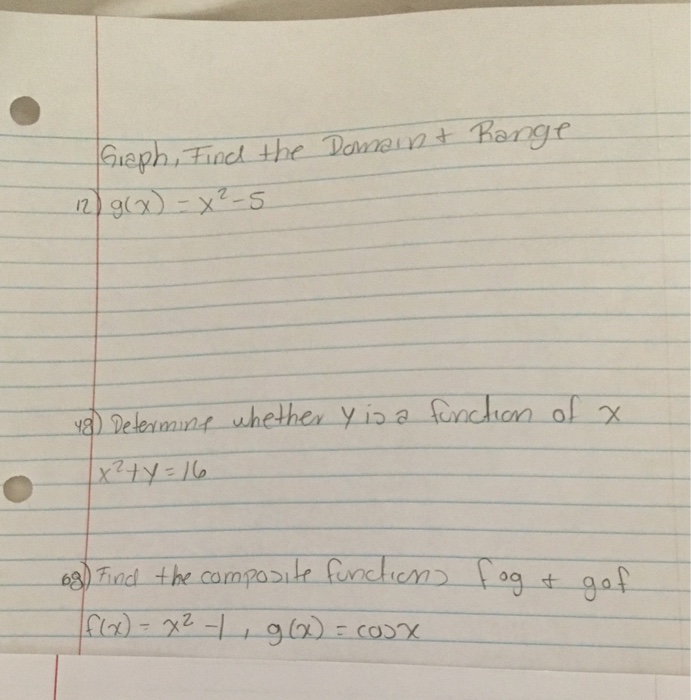 Graph, Find the Domain + Range
12) g(x) = x²-5
48) Determine whether y is a function of x
x²+y=16
68) Find the composite functions fog + gof
f(x) = x² -1, g(x) = cosx